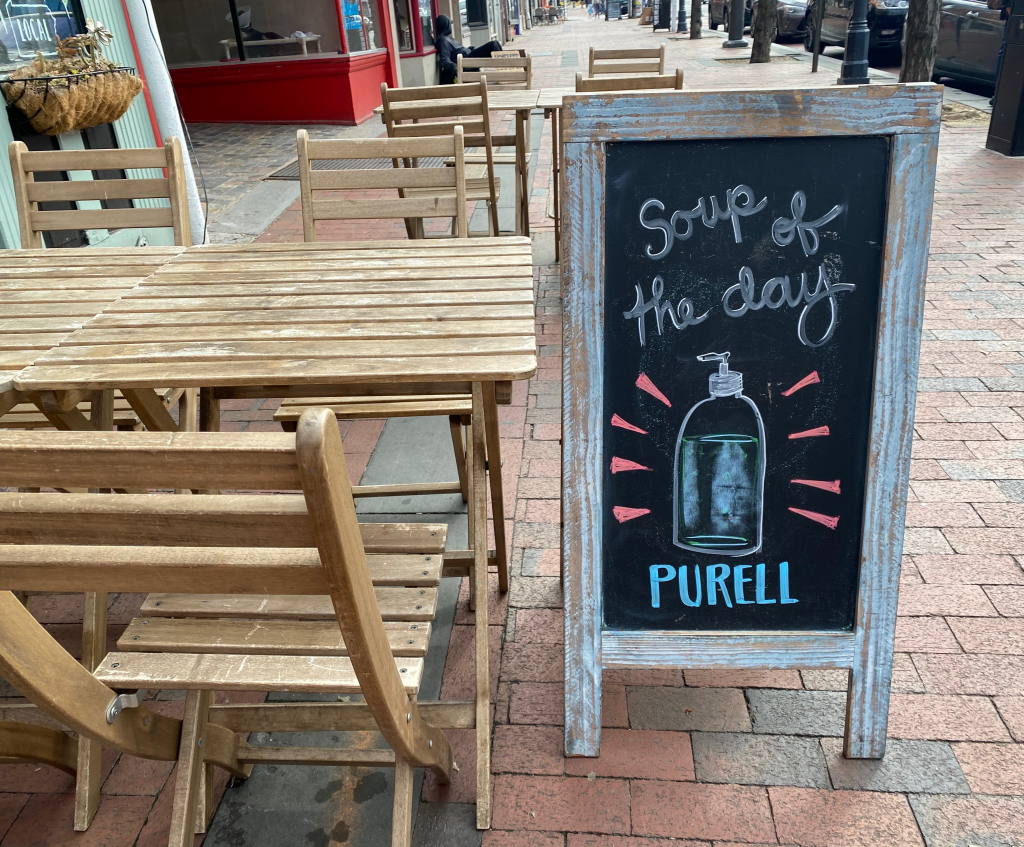 LOCAL
Soup of
the day
PURELL